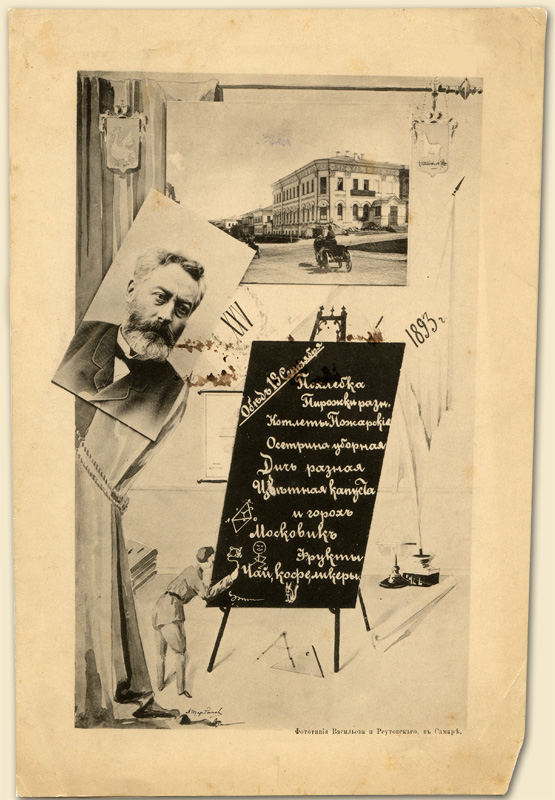 XXV
1893 г.
Обѣдъ 13 Сентября
Похлебка
Пирожки разн.
Котлеты Пожарскіе
Осетрина уборная
Дичь разная
Цвѣтная капуста
и горохъ
Московикъ
Фрукты
Чай, кофе, ликеры
Фототипія Васильева и Реутовскаго, въ Самарѣ.